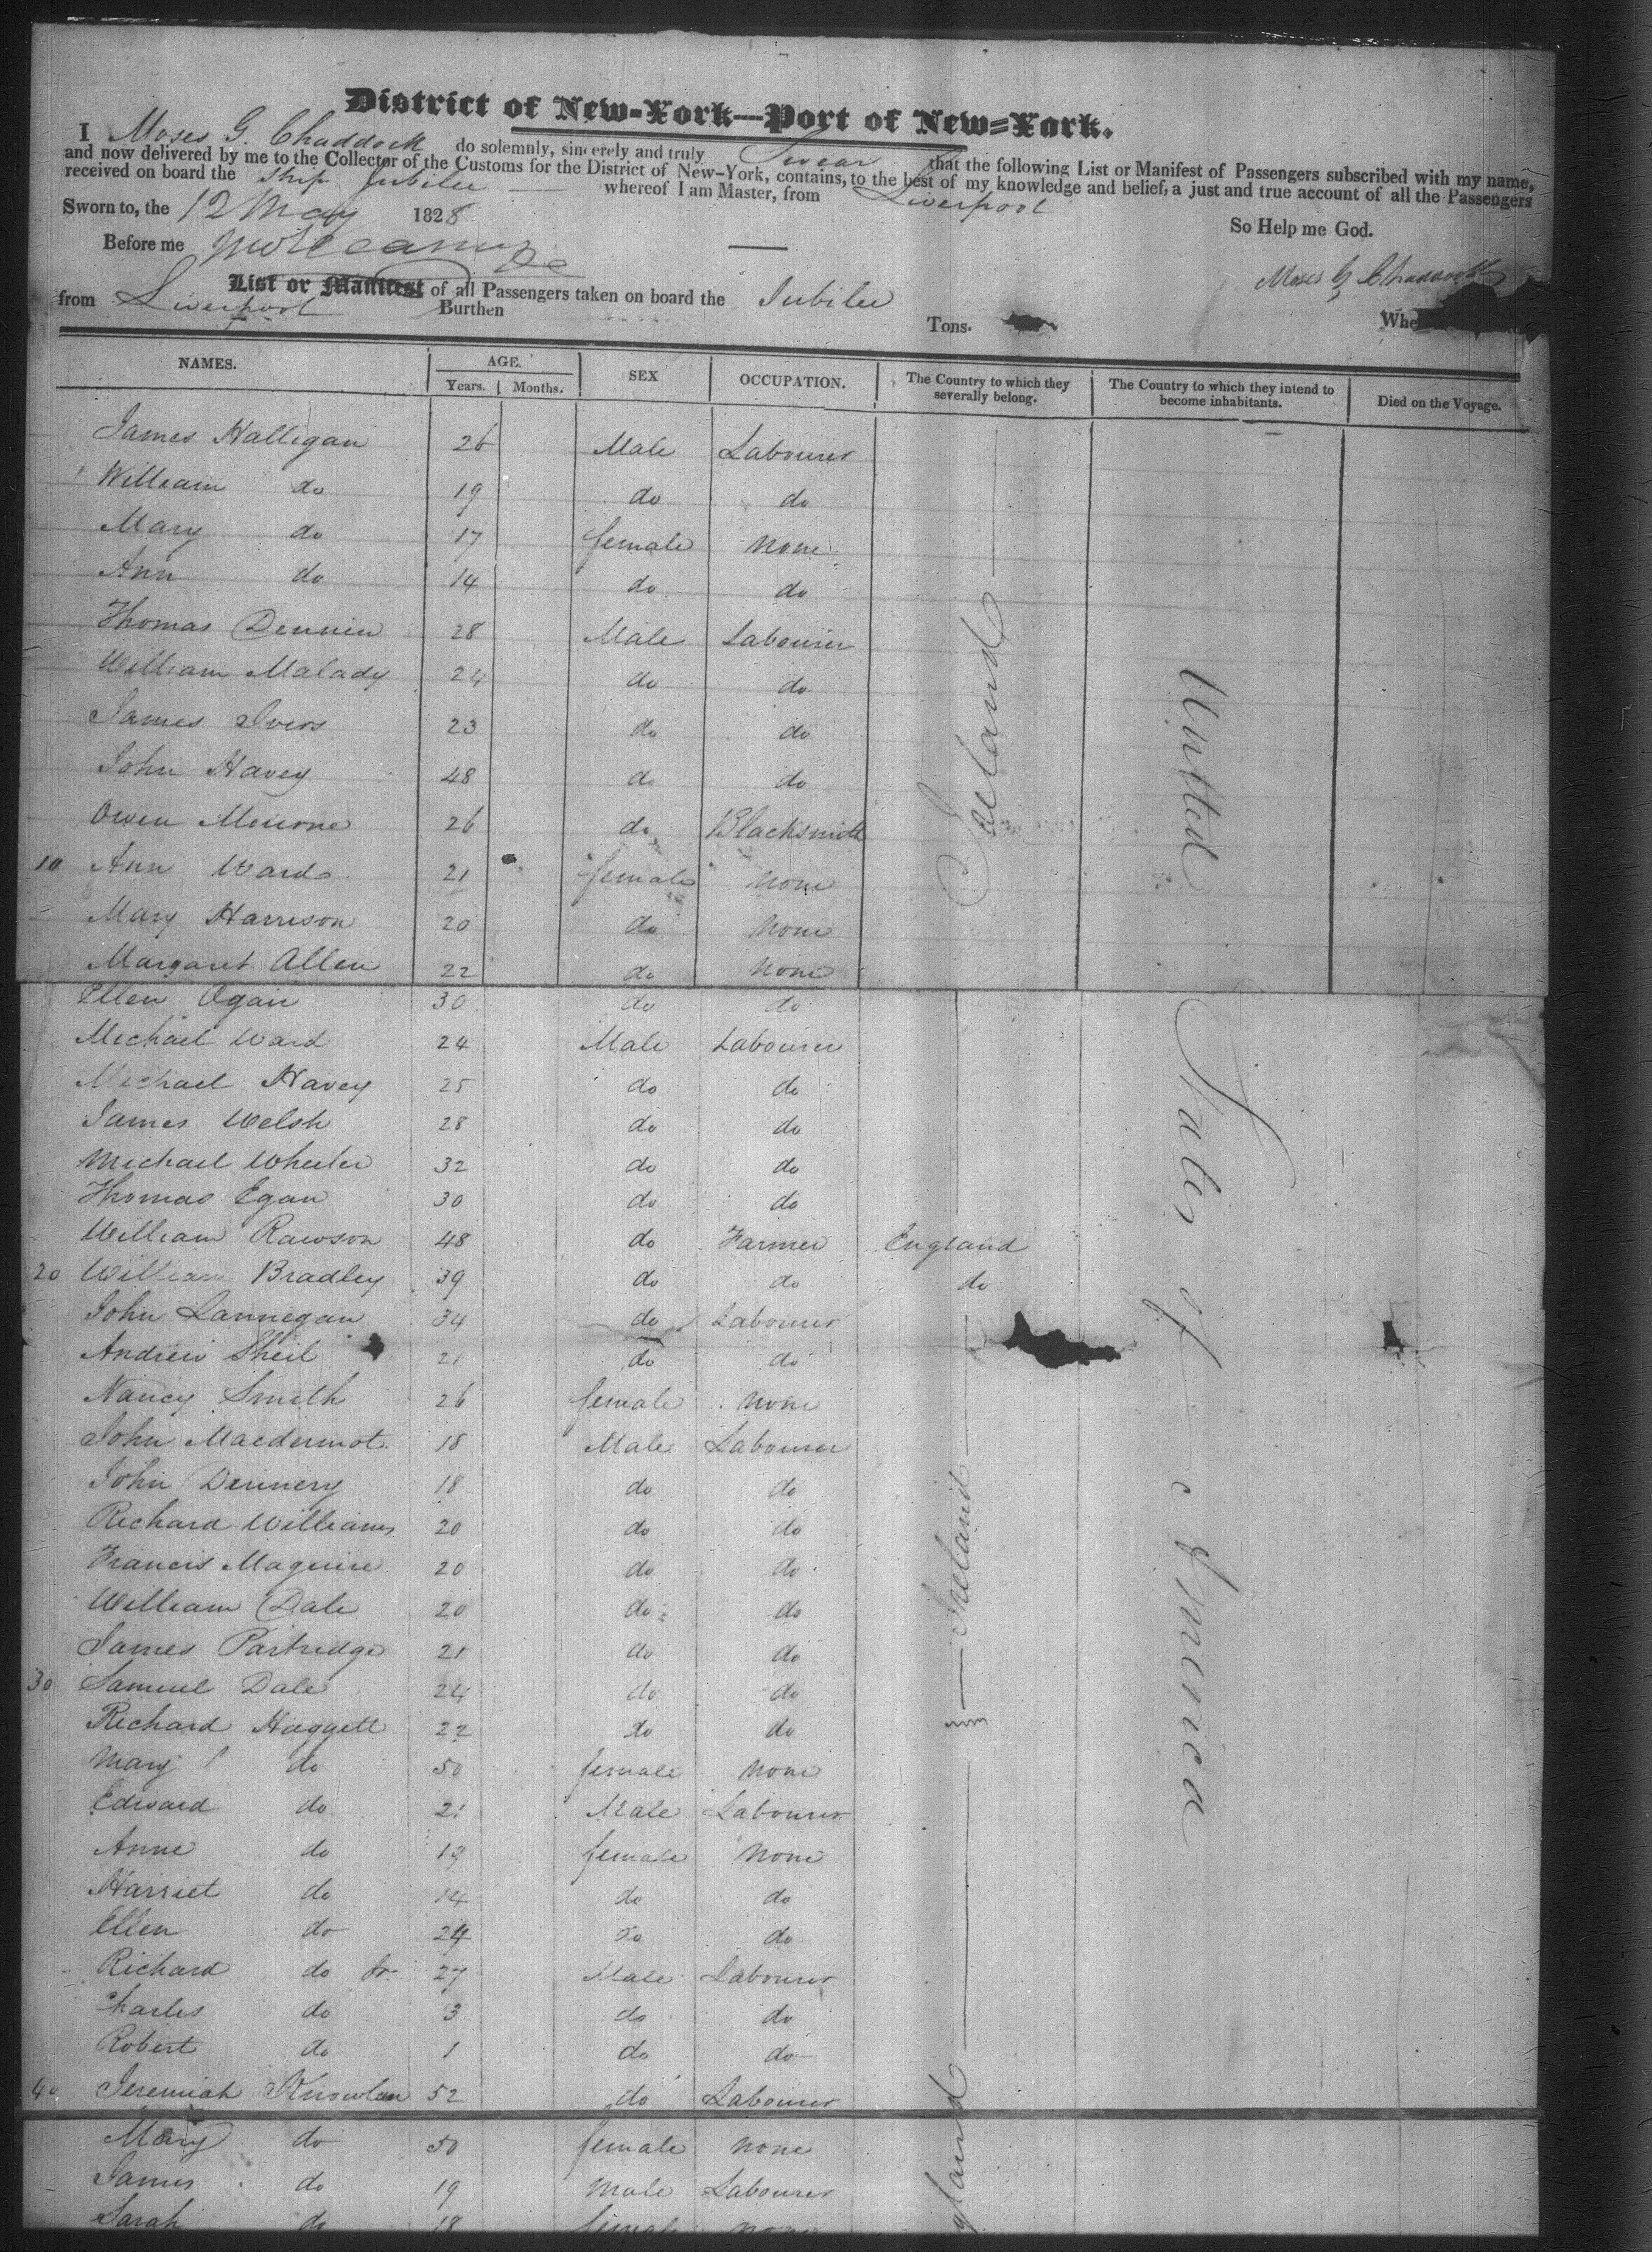 District of New-York—Port of New-York.
I Moses G. Chaddock do solemnly, sincerely and truly Swear that the following List or Manifest of Passengers subscribed with my name,
and now delivered by me to the Collector of the Customs for the District of New-York, contains, to the best of my knowledge and belief, a just and true account of all the Passengers
received on board the Ship Jubilee whereof I am Master, from Liverpool
Sworn to, the 12 May 1828 So Help me God.
Before me
Moses G Chaddock
List or Manifest of all Passengers taken on board the Jubilee Whe
from Liverpool Burthen Tons.
NAMES. AGE. SEX OCCUPATION. The Country to which they severally belong. The Country to which they intend to become inhabitants. Died on the Voyage.
Years. Months.
James Halligan 26 Male Labourer
William do 19 do do
Mary do 17 female none
Ann do 14 do do
Thomas Dennin 28 Male Labourer
William Malady 24 do do
James Ivers 23 do do
John Havey 48 do do
Owen 26 do Blacksmith
10 Ann Ward 21 female none
Mary Harrison 20 do none
Margaret Allen 22 do none
Ellen Ogan 30 do do
Michael Ward 24 Male Labourer
Michael Havey 25 do do
James Welsh 28 do do
Michael Wheeler 32 do do
Thomas Egan 30 do do
William Rawson 48 do Farmer England
20 William Bradley 39 do do do
John Lannegan 34 do Labourer
Andrew Sheil 21 do do
Nancy Smith 26 female none
John Macdermot 18 Male Labourer
John Dennery 18 do do
Richard Williams 20 do do
Francis Maguire 20 do do
William Dale 20 do do
James Partridge 21 do do
30 Samuel Dale 24 do do
Richard Haggett 22 do do
Mary do 50 female none
Edward do 21 Male Labourer
Anne do 19 female none
Harriet do 14 do do
Ellen do 24 do do
Richard do Jr 27 Male Labourer
Charles do 3 do do
Robert do 1 do do
40 Jeremiah Knowlan 52 do Labourer
Mary do 50 female none
James do 19 male Labourer
Sarah do 18 female none
Ireland
Ireland
gland
United States of America